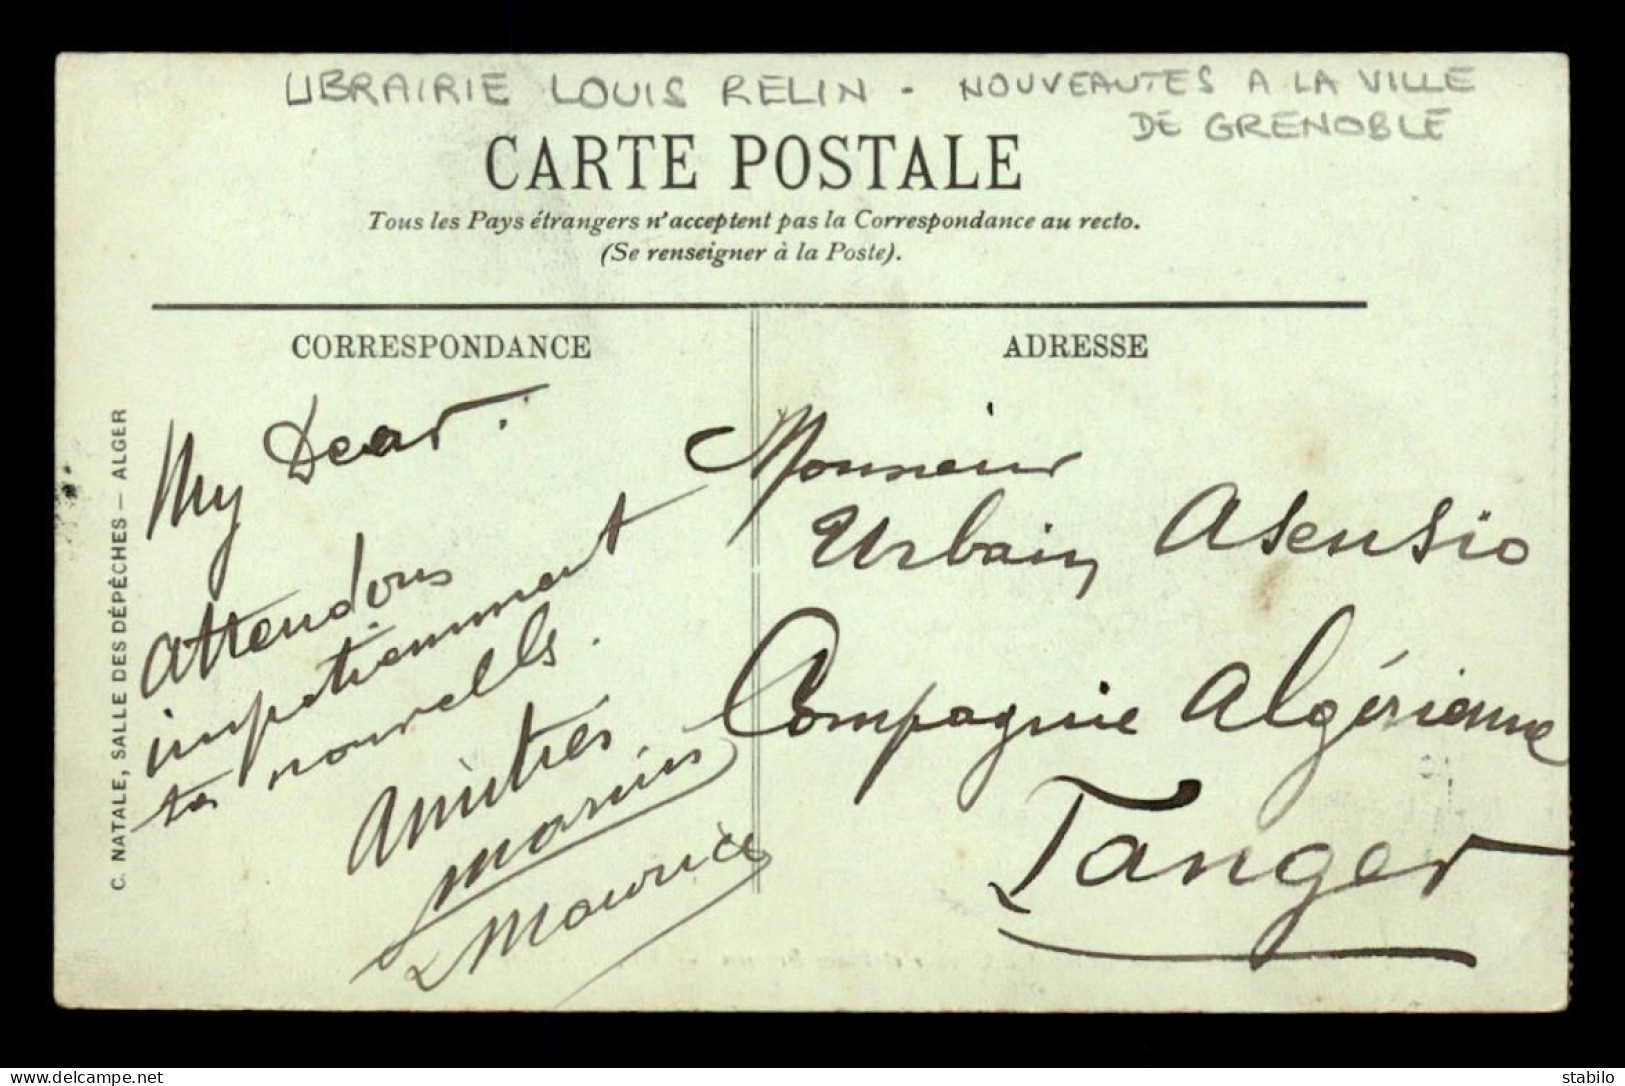 LIBRAIRIE LOUIS RELIN - NOUVEAUTES A LA VILLE
DE GRENOBLE
CARTE POSTALE
Tous les Pays étrangers n'acceptent pas la Correspondance au recto.
(Se renseigner à la Poste).
CORRESPONDANCE
My Dear.
Attendons
impatiemment
tes nouvelles.
Amitiés
Marius
Maurice
ADRESSE
Monsieur
Urbain Asensio
Compagnie Algérienne
Tanger
C. NATALE, SALLE DES DÉPÊCHES — ALGER
www.delcampe.net
stabilo